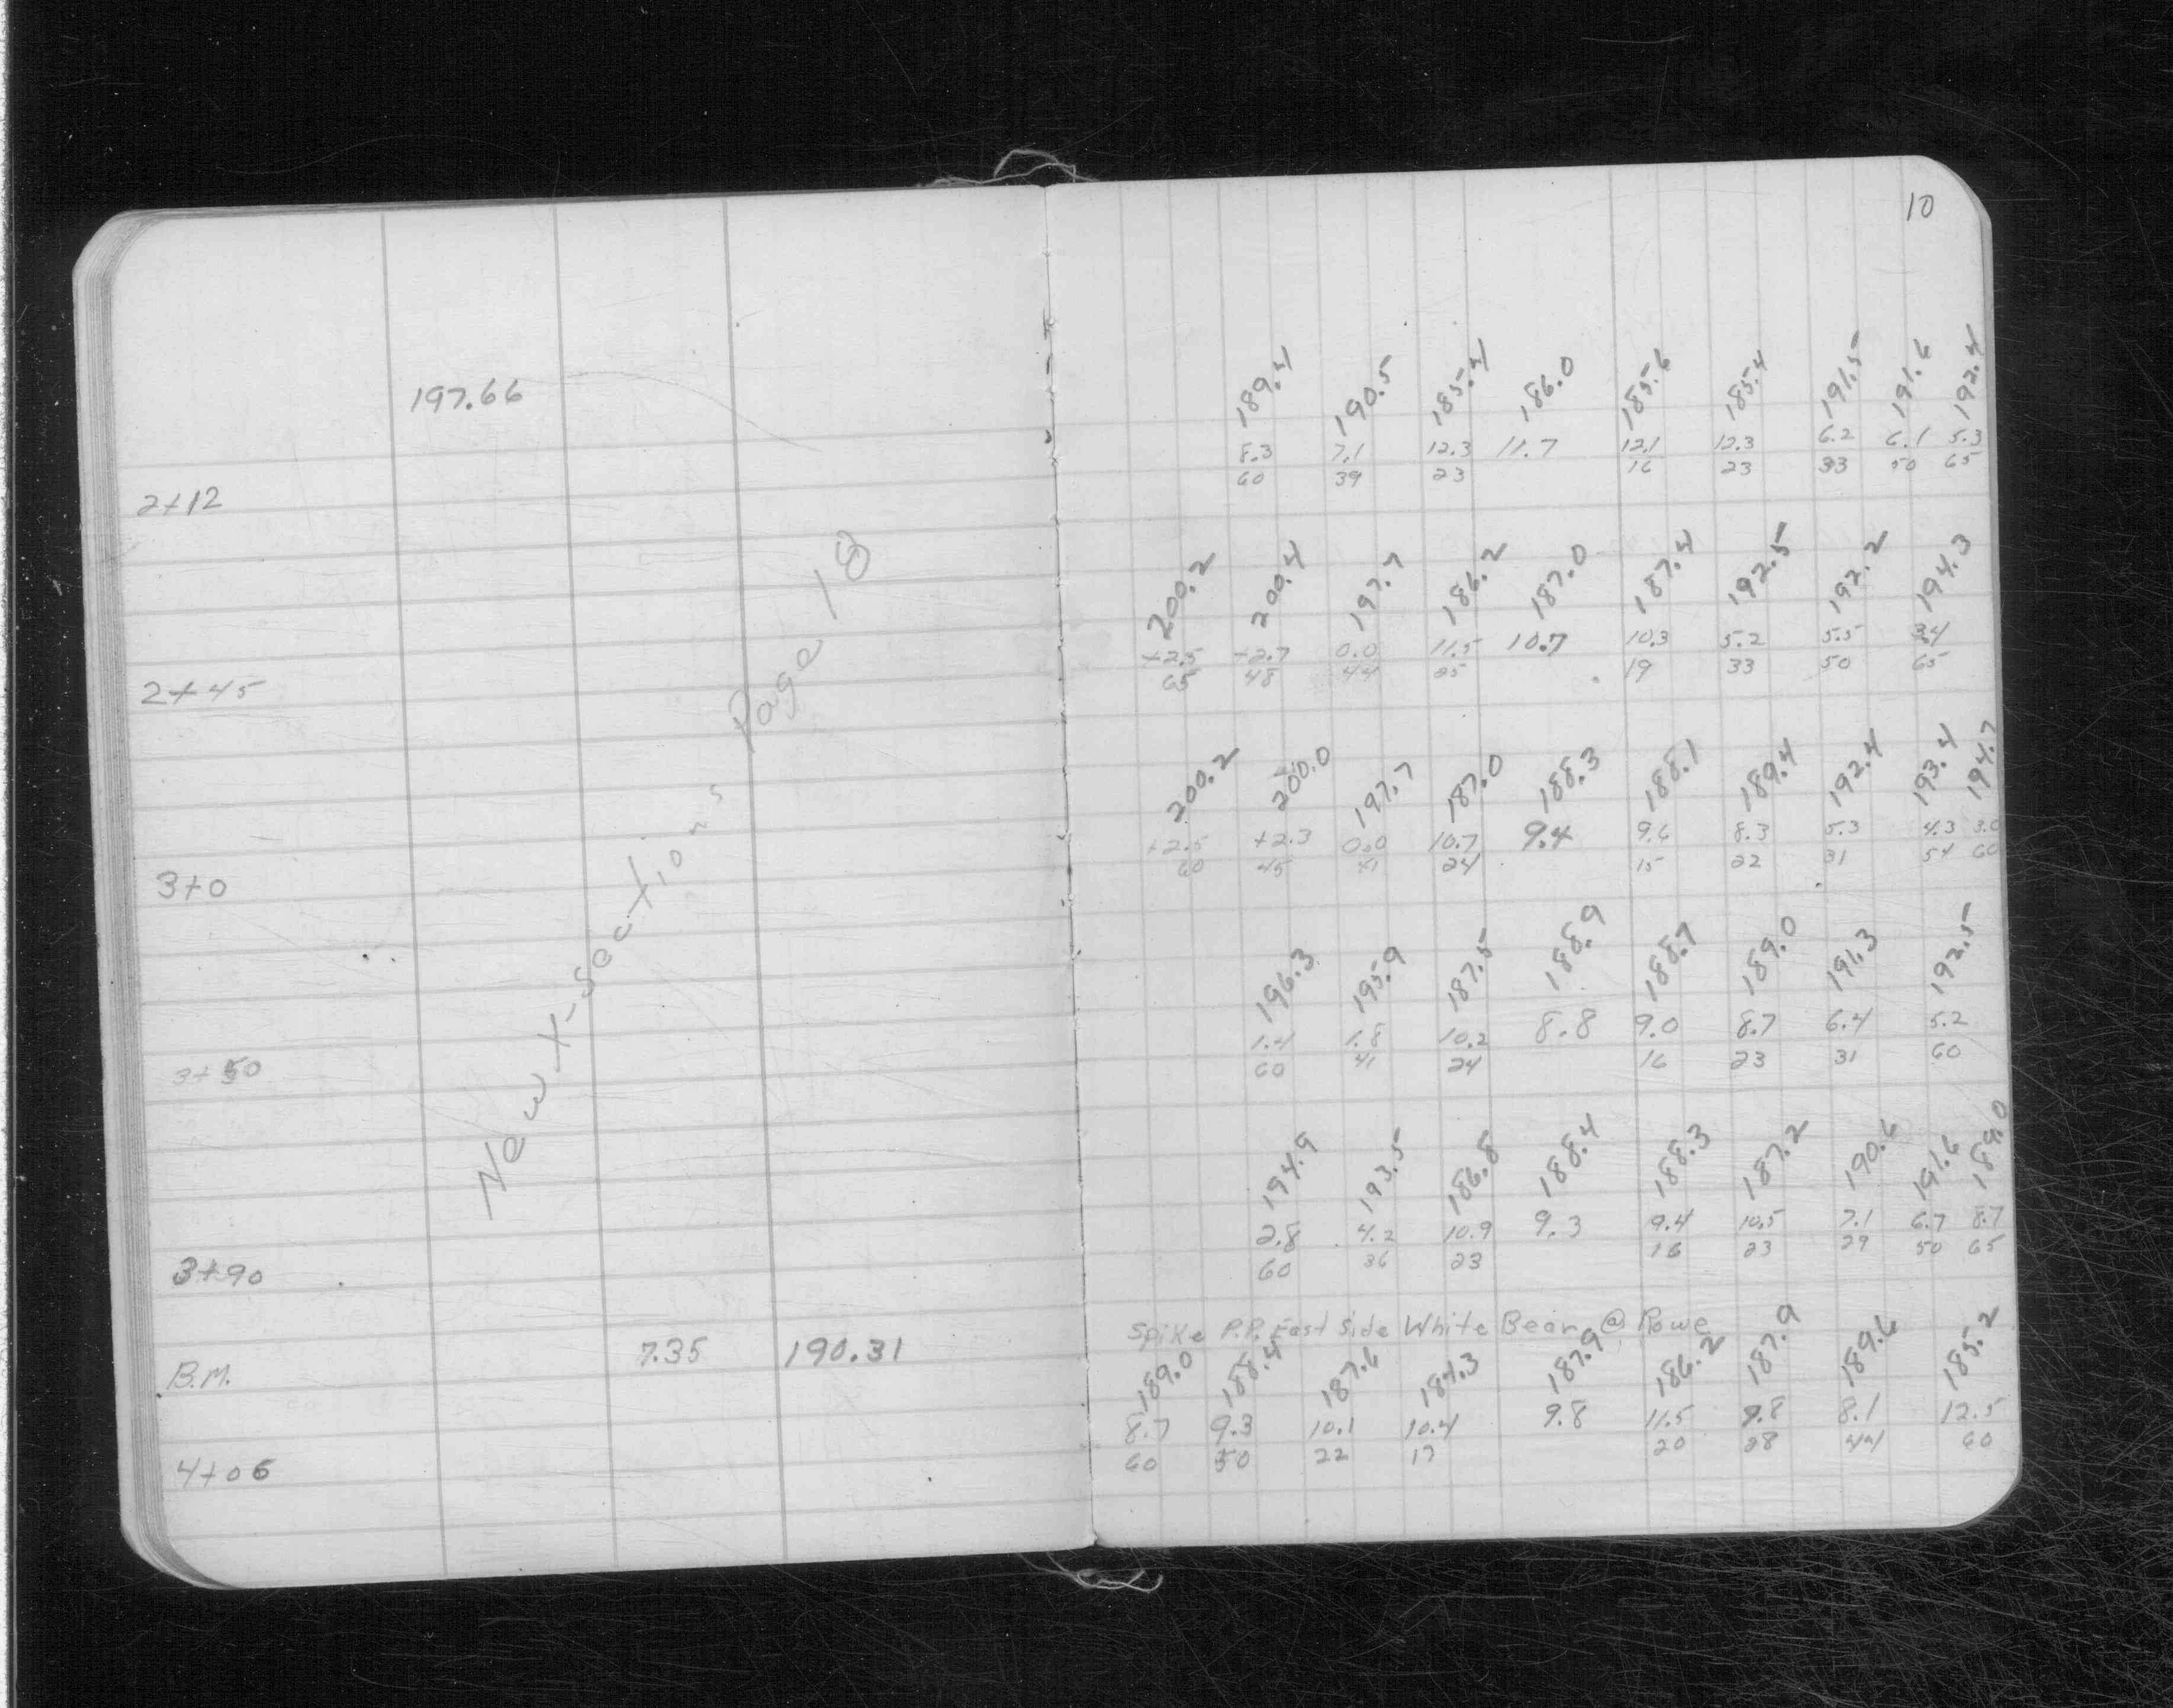 10
197.66
189.4 190.5 185.4 186.0 185.6 185.4 191.5 191.6 192.4
8.3 7.1 12.3 11.7 12.1 12.3 6.2 6.1 5.3
60 39 23 16 23 33 50 65
2+12
200.2 200.4 197.7 186.2 187.0 187.4 192.5 192.2 194.3
+2.5 +2.7 0.0 11.5 10.7 10.3 5.2 5.5 3.4
65 48 44 25 19 33 50 65
2+45
200.2 200.0 197.7 187.0 188.3 188.1 189.4 192.4 193.4 194.7
+2.5 +2.3 0.0 10.7 9.4 9.6 8.3 5.3 4.3 3.0
60 45 41 24 15 22 31 54 60
3+0
196.3 195.9 187.5 188.9 188.7 189.0 191.3 192.5
1.4 1.8 10.2 8.8 9.0 8.7 6.4 5.2
60 41 24 16 23 31 60
3+50
194.9 193.5 186.8 188.4 188.3 187.2 190.6 191.6 189.0
2.8 4.2 10.9 9.3 9.4 10.5 7.1 6.7 8.7
60 36 23 16 23 29 50 65
3+90
Spike P.P. East Side White Bear @ Rowe
B.M. 7.35 190.31
189.0 188.4 187.6 187.9 186.2 187.9 189.6 185.2
8.7 9.3 10.1 10.4 9.8 11.5 9.8 8.1 12.5
60 50 22 17 20 28 44 60
4+06
New X-Sections Page 18